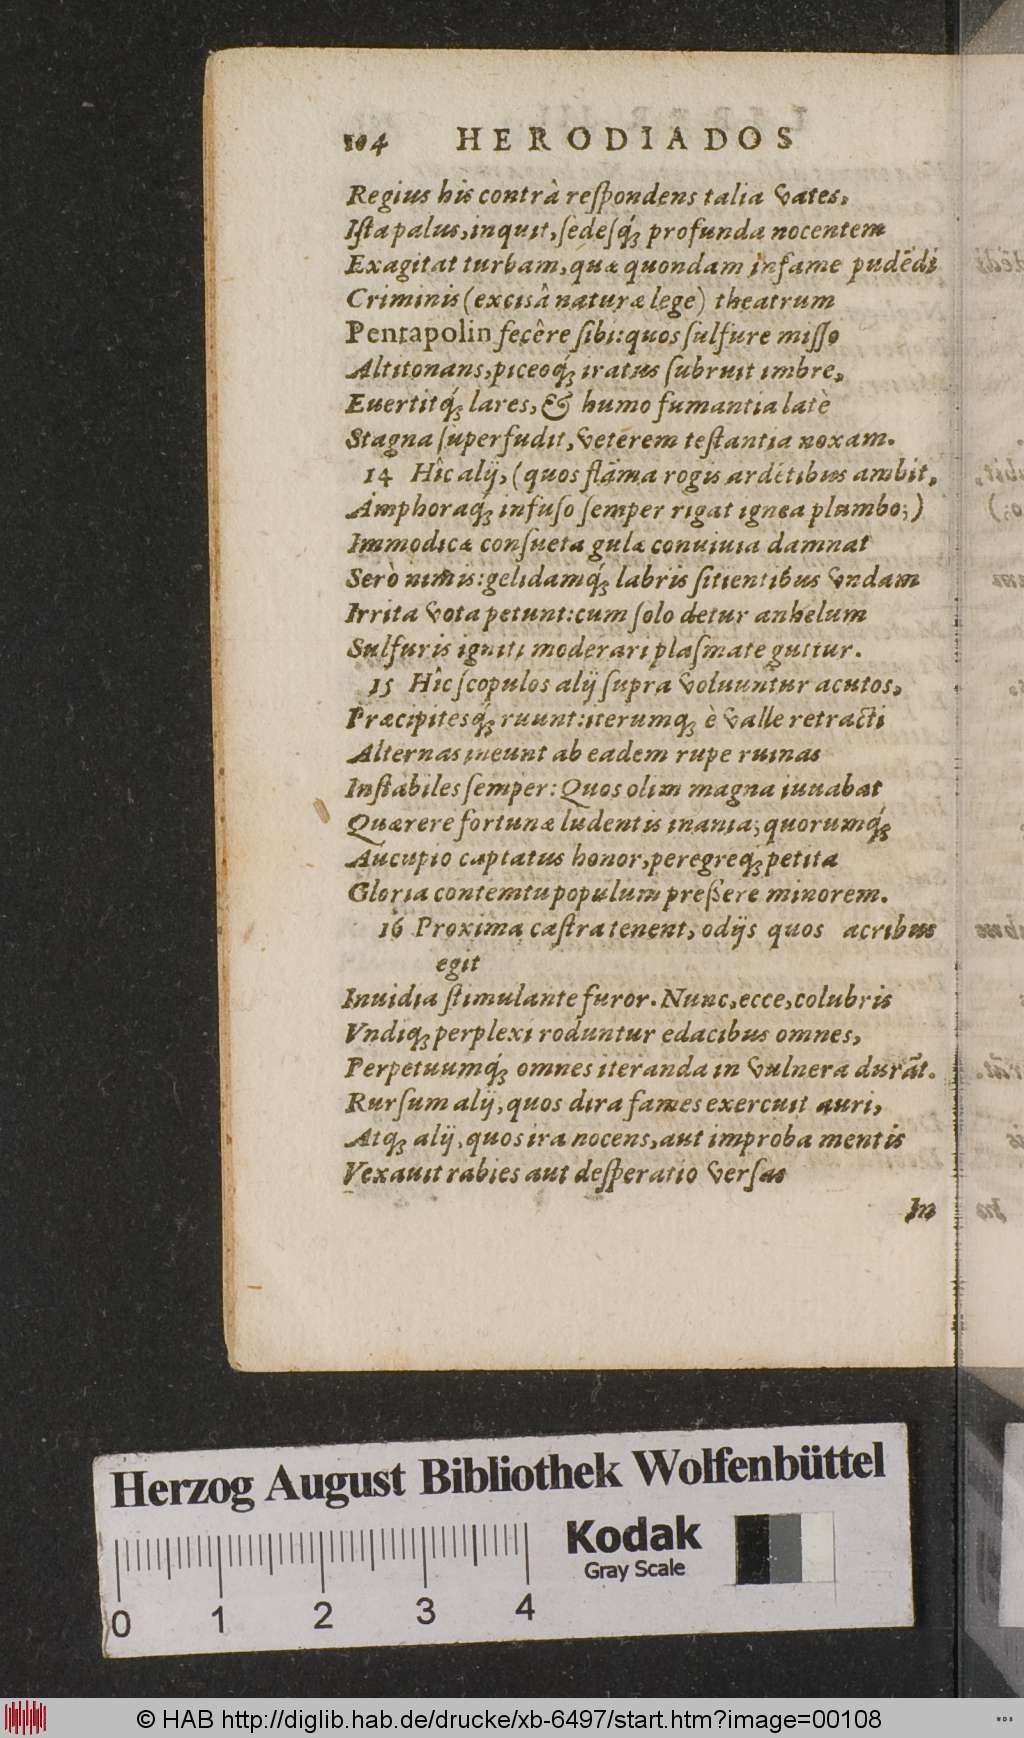 104 HERODIADOS
Regius his contrà reſpondens talia vates,
Iſta palus, inquit, ſedeſq́; profunda nocentem
Exagitat turbam, quæ quondam infame pudēdi
Criminis (excisâ naturæ lege) theatrum
Pentapolin fecêre ſibi: quos ſulfure miſſo
Altitonans, piceoq́; iratus ſubruit imbre,
Euertitq́; lares, & humo fumantia latè
Stagna ſuperfudit, veterem teſtantia noxam.
14 Hîc alij, (quos flāma rogis ardētibus ambit,
Amphoraq́; infuſo ſemper rigat ignea plumbo;)
Immodicæ conſueta gulæ conuiuia damnat
Serò nimis: gelidamq́; labris ſitientibus vndam
Irrita vota petunt: cum ſolo detur anhelum
Sulfuris igniti moderari plaſmate guttur.
15 Hîc ſcopulos alij ſupra voluuntur acutos,
Præcipitesq́; ruunt: iterumq; è valle retracti
Alternas ineunt ab eadem rupe ruinas
Inſtabiles ſemper: Quos olim magna iuuabat
Quærere fortunæ ludentis inania; quorumq́;
Aucupio captatus honor, peregreq; petita
Gloria contemtu populum preßere minorem.
16 Proxima caſtra tenent, odijs quos acribus
egit
Inuidia ſtimulante furor. Nunc, ecce, colubris
Vndiq; perplexi roduntur edacibus omnes,
Perpetuumq́; omnes iteranda in vulnera durāt.
Rurſum alij, quos dira fames exercuit auri,
Atq; alij, quos ira nocens, aut improba mentis
Vexauit rabies aut deſperatio verſas
In
Herzog August Bibliothek Wolfenbüttel
Kodak
Gray Scale
0 1 2 3 4
© HAB http://diglib.hab.de/drucke/xb-6497/start.htm?image=00108